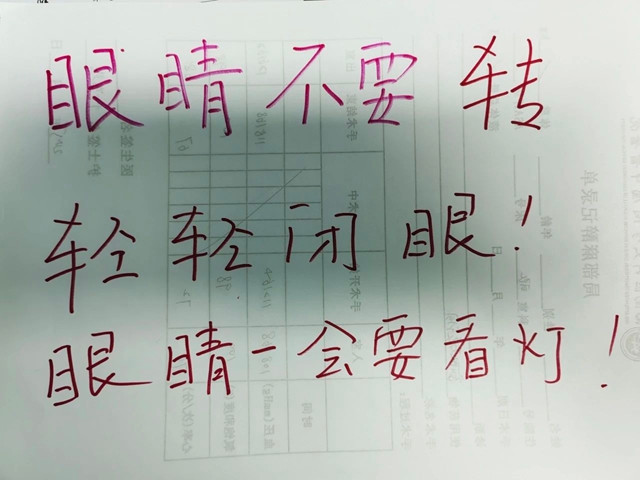 眼睛不要转
轻轻闭眼！
眼睛一会要看灯！